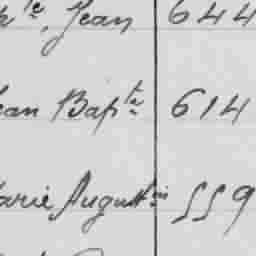 te, Jean 644
ean Bapte 614
arie Augustin 559